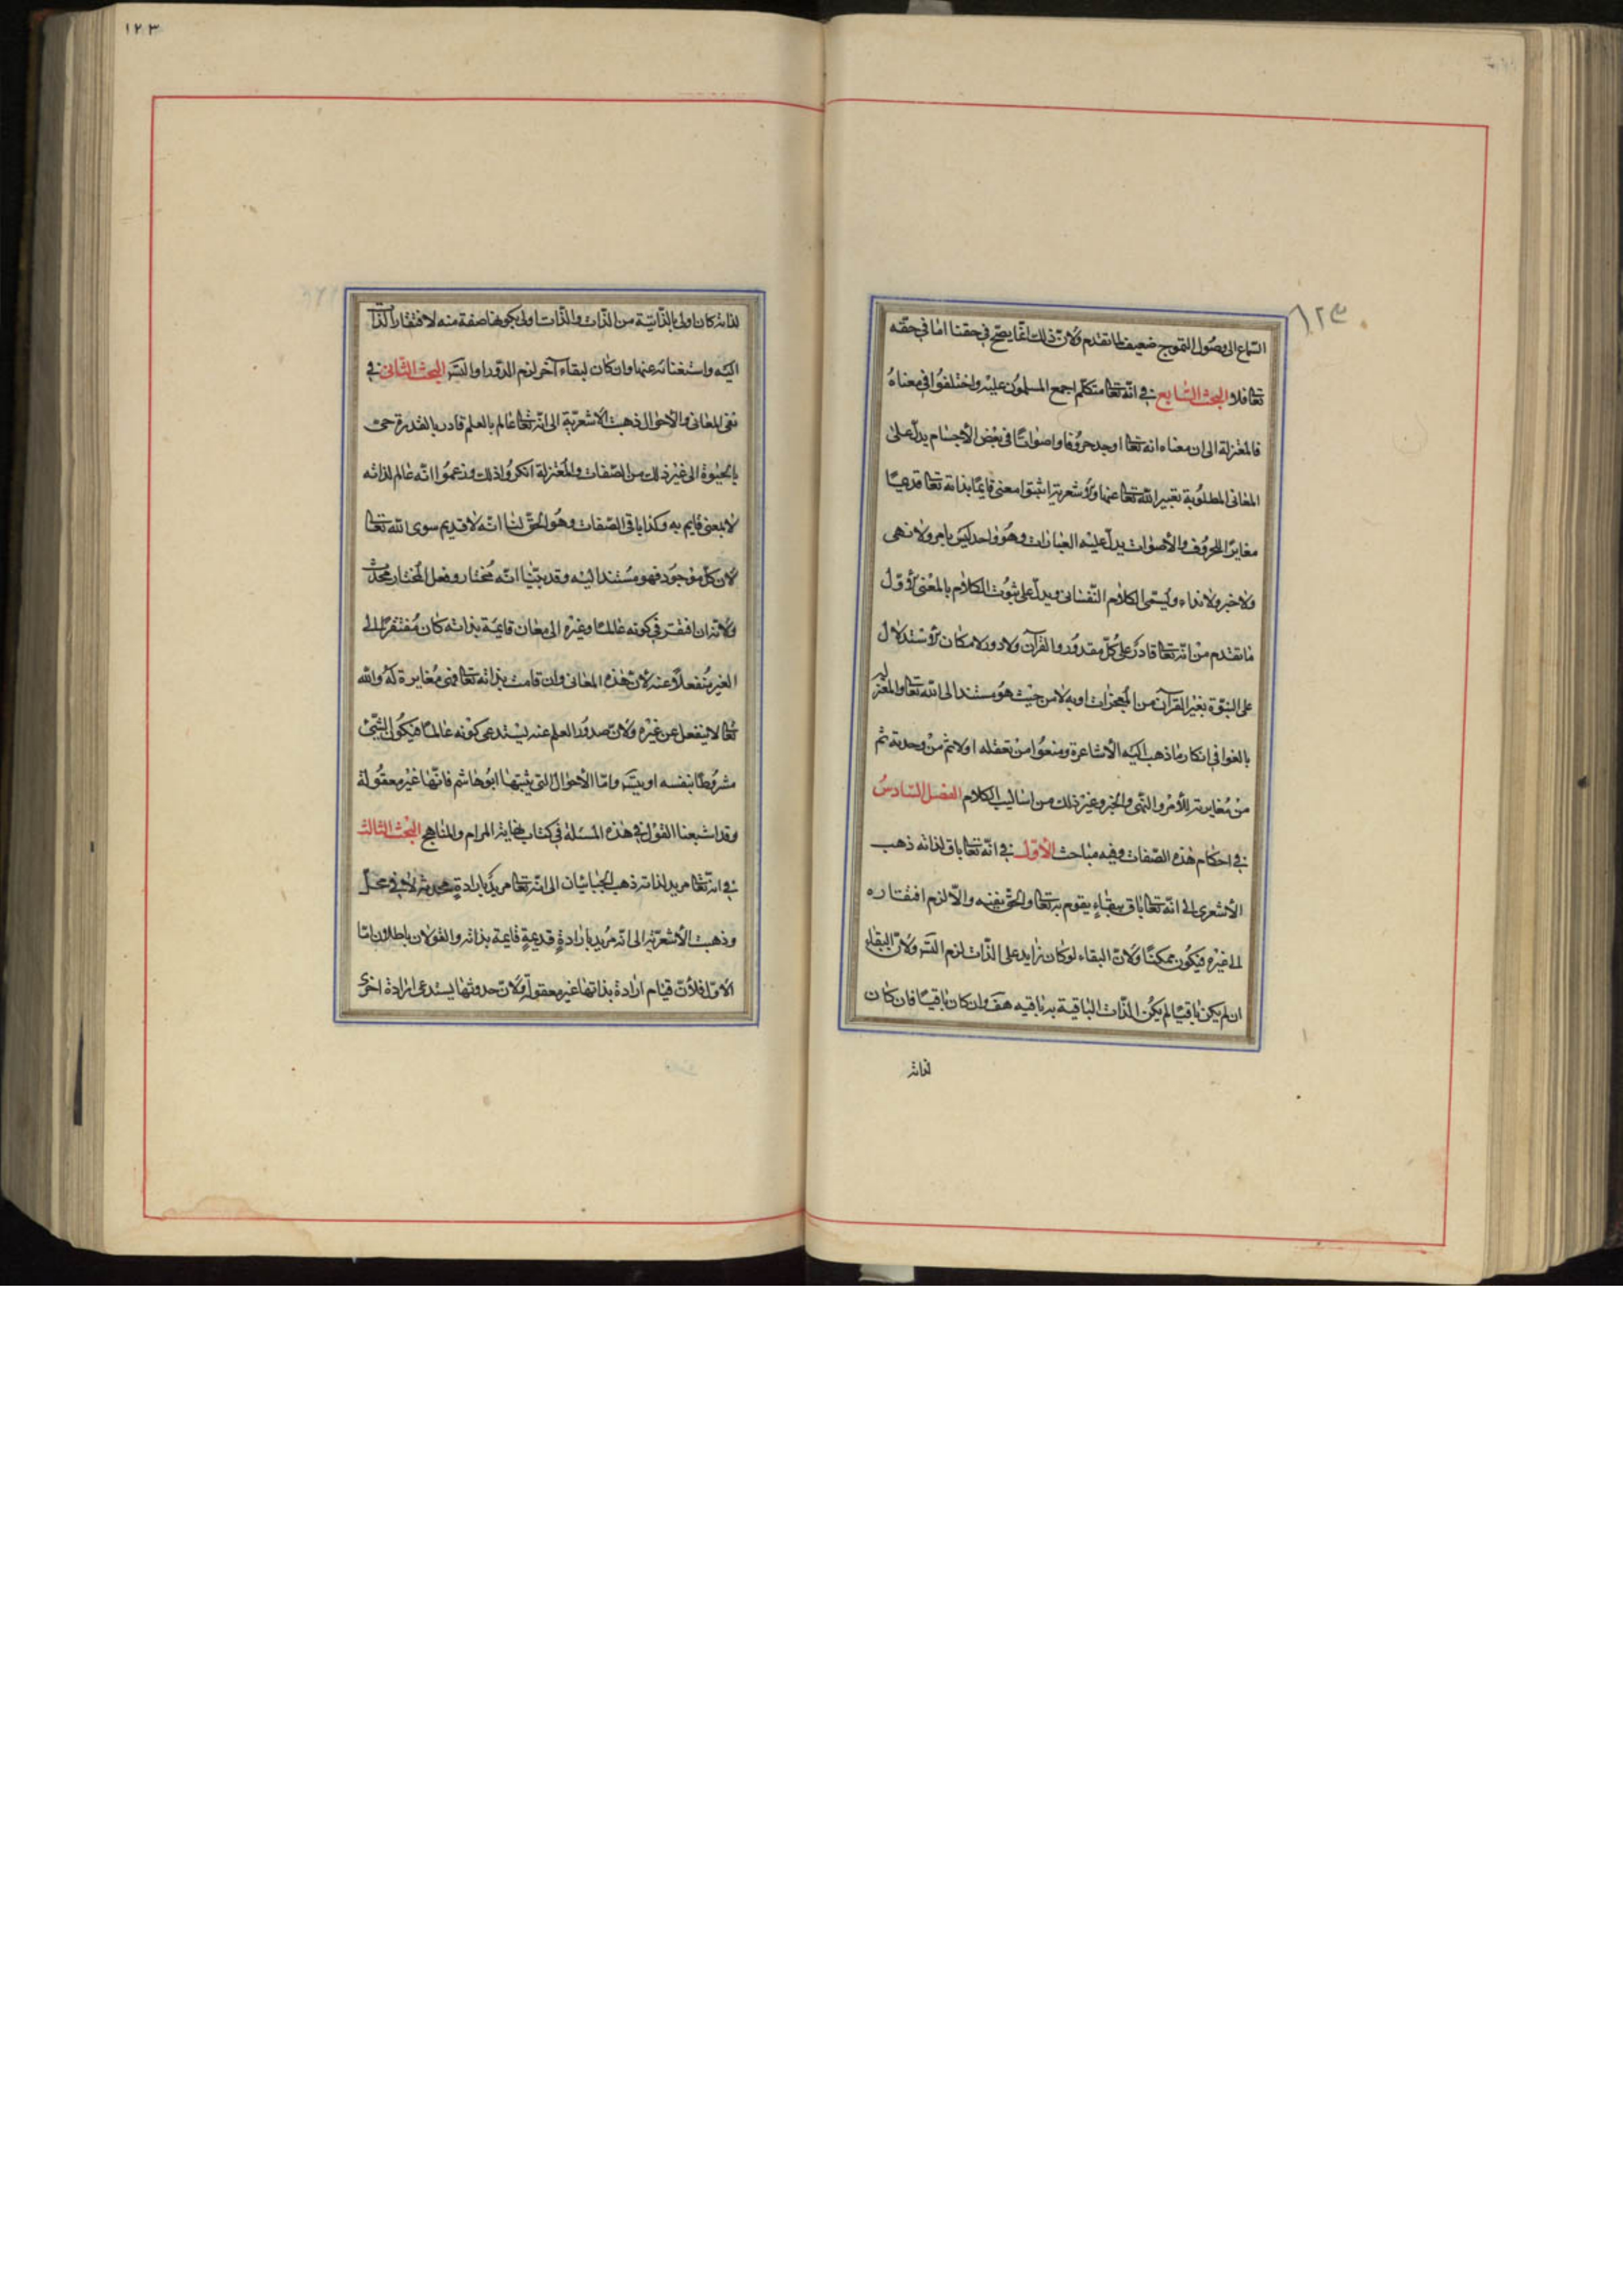 السماع الى وصول التموج ضعيف لما تقدم ولان ذلك انما يصح في حقنا اما في حقه
تعالى فلا البحث السابع في انه تعالى متكلم اجمع المسلمون عليه واختلفوا في معناه
فالمعتزلة الى ان معناه انه تعالى اوجد حروفا واصواتا في بعض الأجسام يدل على
المعاني المطلوبة تعبير الله تعالى عنها والأشعرية اثبتوا معنى قايما بذاته تعالى قديما
مغايرا للحروف والأصوات يدل عليه العبارات وهو واحد ليس بامر ولا نهى
ولا خبر ولا نداء ويسمى الكلام النفساني ويدل على ثبوت الكلام بالمعنى الأول
ما تقدم من انه تعالى قادر على كل مقدور والقرآن ولا دور لامكان الأستدلال
على النبوة بغير القرآن من المعجزات او به لا من حيث هو مستند الى الله تعالى والمعتزلة
بالغوا في انكار ما ذهب اليه الأشاعرة ومنعوا من تعقله اولا ثم من وحدته ثم
من مغايرته للأمر والنهى والخبر وغير ذلك من اساليب الكلام الفصل السادس
في احكام هذه الصفات وفيه مباحث الأول في انه تعالى باق لذاته ذهب
الأشعرى الى انه تعالى باق ببقاء يقوم به تعالى والحق نفيه والا لزم افتقاره
الى غيره فيكون ممكنا ولان البقاء لو كان زايد على الذات لزم التسـ ولان البقاء
ان لم يكن باقيا لم يكن الذات الباقية به باقيه هف وان كان باقيا فان كان
لذاته
١٢٣
١٢٣
لذاته كان اولى بالذاتية من الذات والذات اولى بكونها صفة منه لافتقار الذات
اليه واستغنائه عنها وان كان لبقاء آخر لزم الدور او التسـ البحث الثاني في
نفى المعانى والأحوال ذهبت الأشعرية الى انه تعالى عالم بالعلم قادر بالقدرة حى
بالحيوة الى غير ذلك من الصفات والمعتزلة انكروا ذلك وزعموا انه عالم لذاته
لا بمعنى قايم به وكذا باقى الصفات وهو الحق لنا انه لا قديم سوى الله تعالى
لان كل موجود فهو مستند اليه وقد بينا انه مختار وفعل المختار محدث
ولانه ان افتقر في كونه عالما وغيره الى معان قايمة بذاته كان مفتقرا الى
الغير منفعلا عنه لان هذه المعانى وان قامت بذاته تعالى فهى مغايرة له والله
تعالى لا ينفعل عن غيره ولان صدور العلم عنه يستدعى كونه عالما فيكون الشئ
مشروطا بنفسه او يتسـ واما الأحوال التى يثبتها ابو هاشم فانها غير معقولة
وقد اشبعنا القول في هذه المسئلة في كتاب نهاية المرام والمناهج البحث الثالث
في انه تعالى مريد لذاته ذهب الجبائيان الى انه تعالى مريد بارادة محدثة لا في محل
وذهبت الأشعرية الى انه مريد بارادة قديمة قايمة بذاته والقولان باطلان اما
الاول فلأن قيام ارادة بذاتها غير معقول ولان حدوثها يستدعى ارادة اخرى